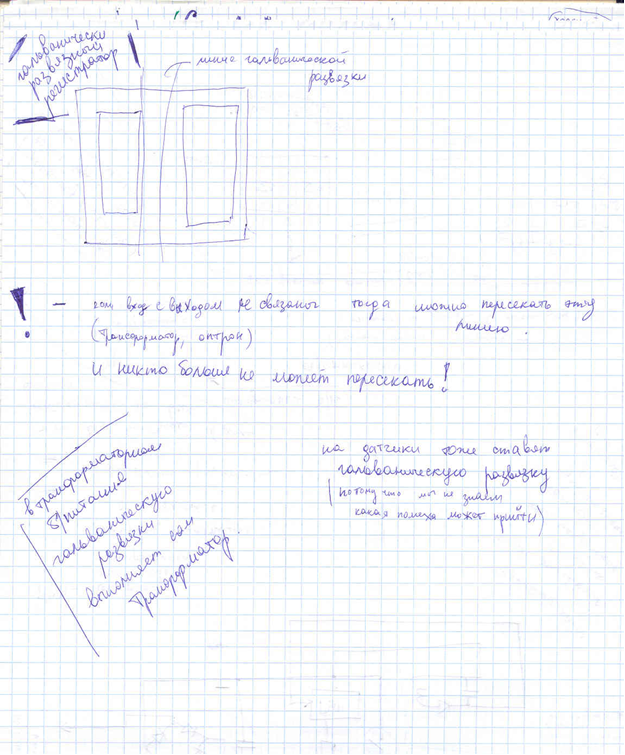 гальванически
развязный
регистратор
линия гальванической
развязки
! — если вход с выходом не связаны тогда можно пересекать эту
линию.
(трансформатор, оптрон)
И никто больше не может пересекать!
на датчики тоже ставят
гальваническую развязку
(потому что мы не знаем
какая помеха может прийти)
в трансформаторном
б/питания
гальваническую
развязки
выполняет сам
трансформатор.